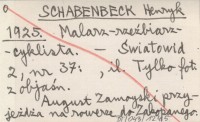 SCHABENBECK Henryk
1925. Malarz-rzeźbiarz-
-cyklista. - Światowid
2, nr 37: , il. Tylko fot.
z objaśn.
August Zamoyski przy-
jeżdża na rowerze do Zakopanego.